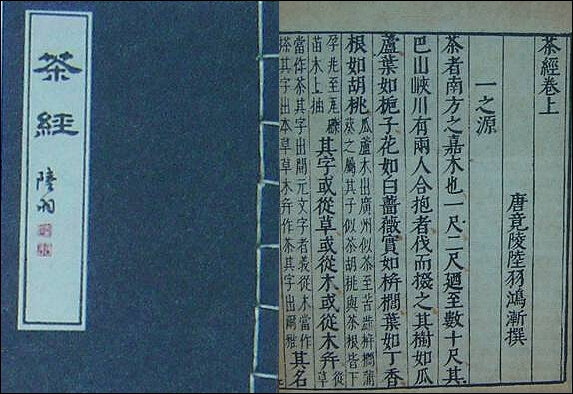 茶經
陸羽
茶經卷上
唐竟陵陸羽鴻漸撰
一之源
茶者南方之嘉木也一尺二尺廻至數十尺其
巴山峽川有兩人合抱者伐而掇之其樹如瓜
蘆葉如梔子花如白薔薇實如栟櫚葉如丁香
根如胡桃瓜蘆木出廣州似茶至苦澁栟櫚蒲
葵之屬其子似茶胡桃與茶根皆下
孕兆至瓦礫
苗木上抽其字或從草或從木或從木弁從草
當作茶其字出開元文字者義從木當作
搽其字出本草草木弁作茶其字出爾雅其名